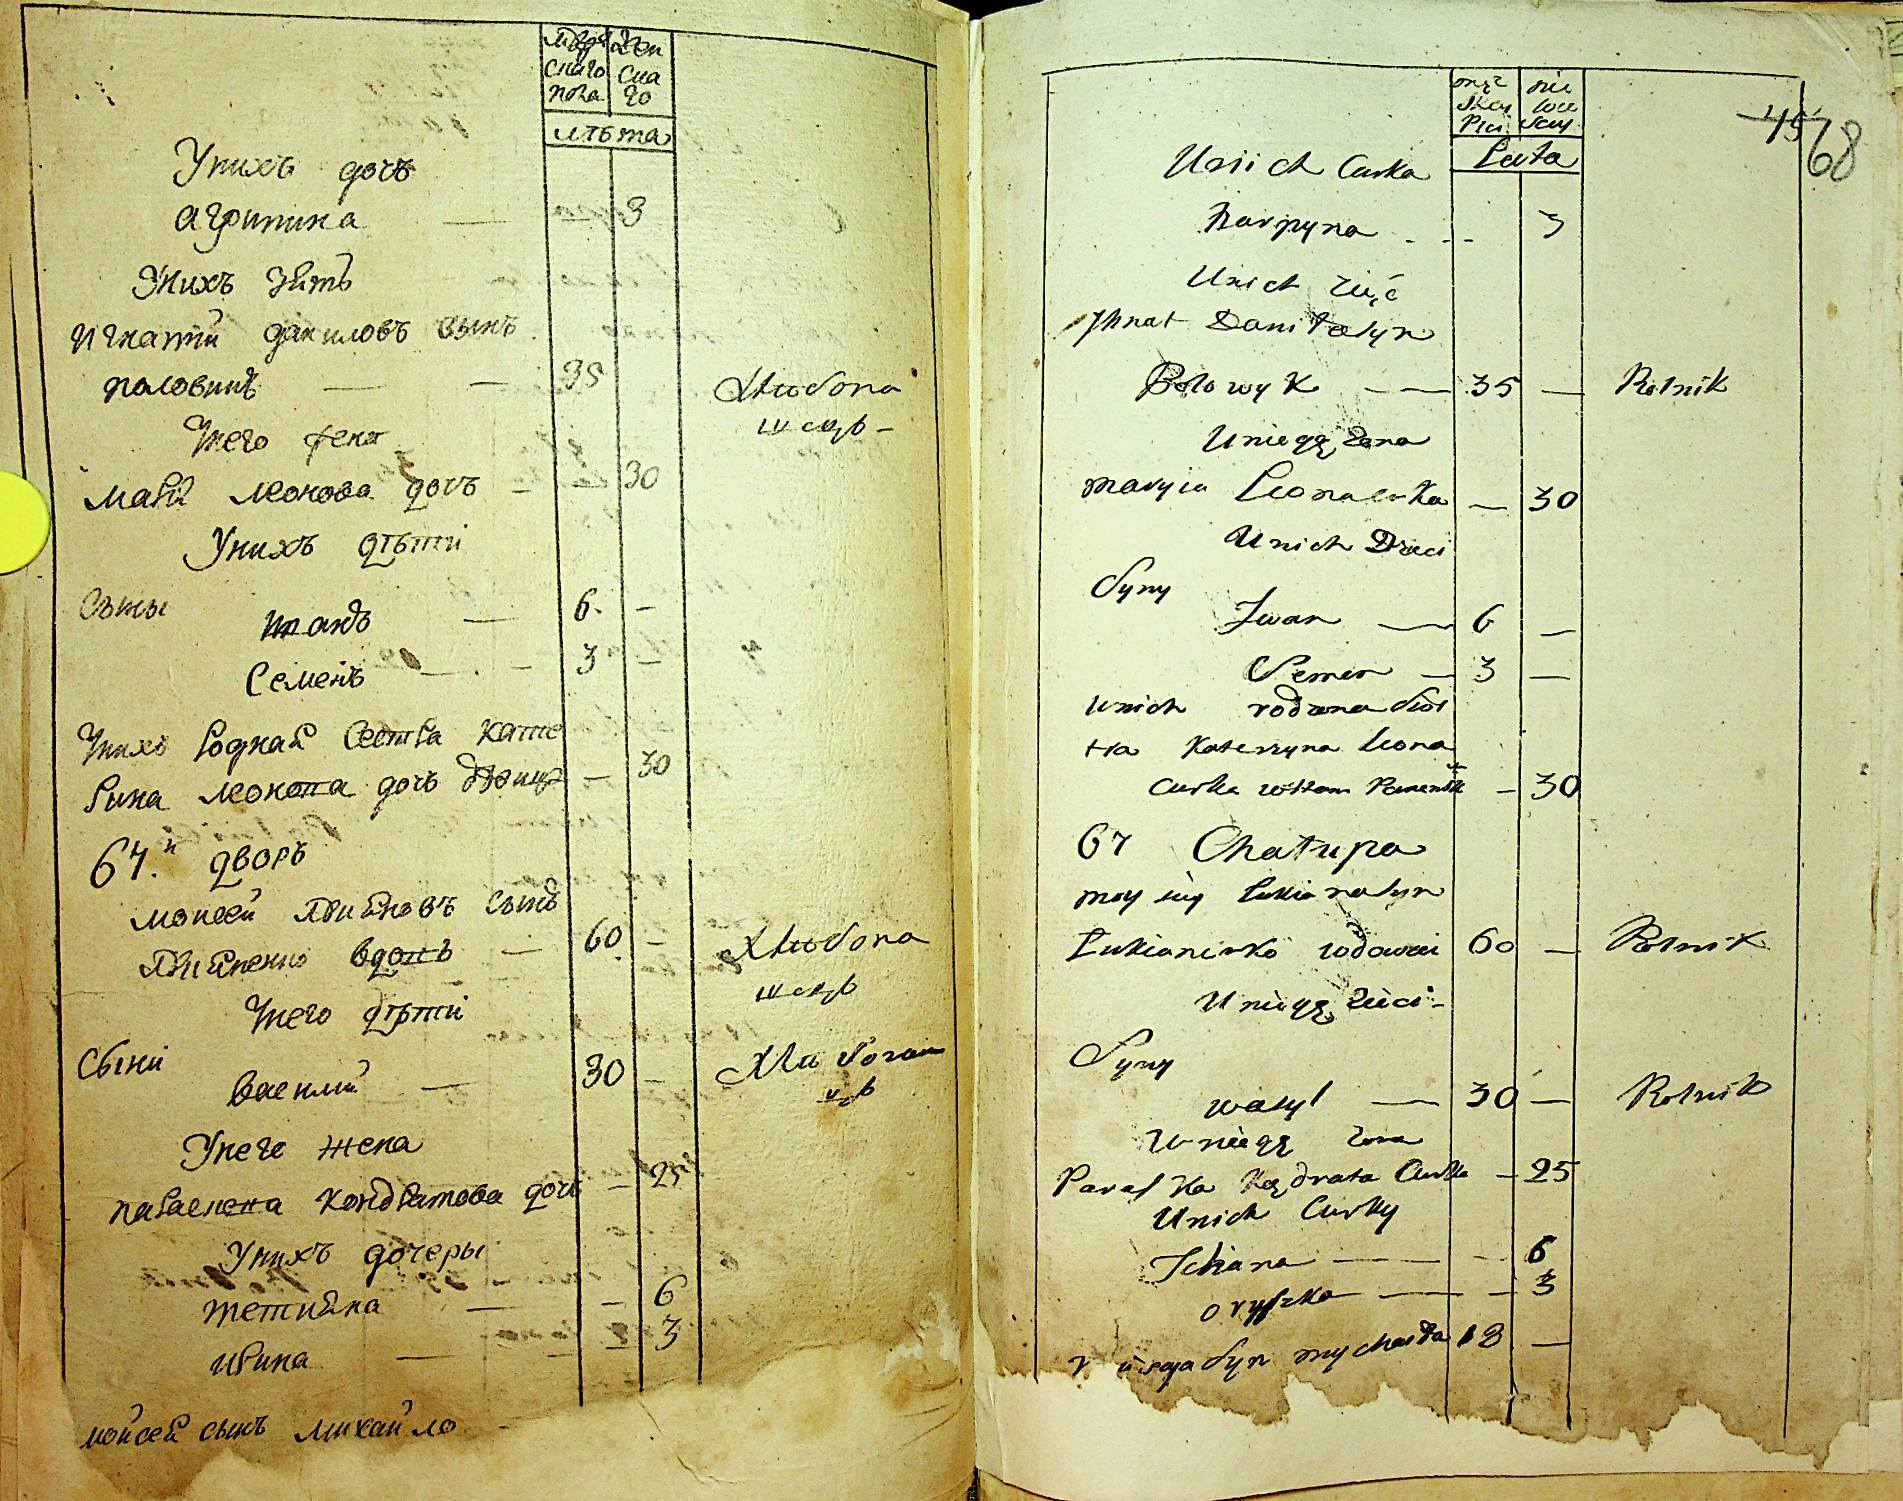 мужскаго пола
женскаго
лѣта
Унихъ дочь
Агрипина — 3
Унихъ зять
Игнатий даниловъ сынъ
половикъ — — 35
Хлебопашецъ
Унего жена
Мария леонова дочь — 30
Унихъ дѣти
Сыны
Иванъ — 6 —
Семенъ — 3 —
Унихъ родная сестра кате
рина леонова дочь — 30
67й дворъ
Моисей сынъ
вдовъ — 60 —
Хлебопашецъ
Унего дѣти
Сыни
Василий — 30 —
Хлебопашецъ
Унего жена
кондратова дочь — 25
Унихъ дочеры
тетияна — — 6
Ирина — — 3
Мойсея сынъ михайло
męzskey Płci
niewescey
Lata
45 68
Unich Curka
3
Unich zięć
Ihnat Daniła syn
Połowyk — 35 — Rolnik
Uniegę żona
Maryia Leona curka — 30
Unich Dzieci
Syny
Iwan — 6 —
Semen — 3 —
Unich rodzona sios
tra Katerzyna Leona
curka — 30
67 Chałupa
Moysiey Lukiana syn
Lukianenko wdowiec 60 — Rolnik
Uniegę
Syny
Wasyl — 30 — Rolnik
Uniegę żona
Paraska Kądrata Curka — 25
Unich Curky
— 6
Oryszka — — 3
syn mychaiła 18 —